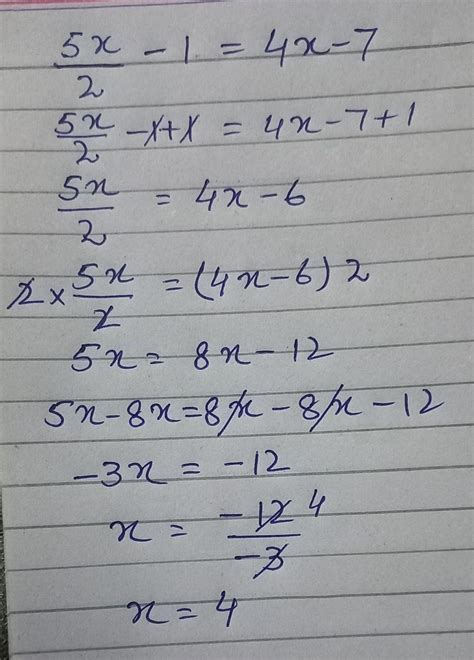 5x/2 - 1 = 4x - 7
5x/2 - 1 + 1 = 4x - 7 + 1
5x/2 = 4x - 6
2 × 5x/2 = (4x - 6) 2
5x = 8x - 12
5x - 8x = 8x - 8x - 12
-3x = -12
x = -12/-3 4
x = 4